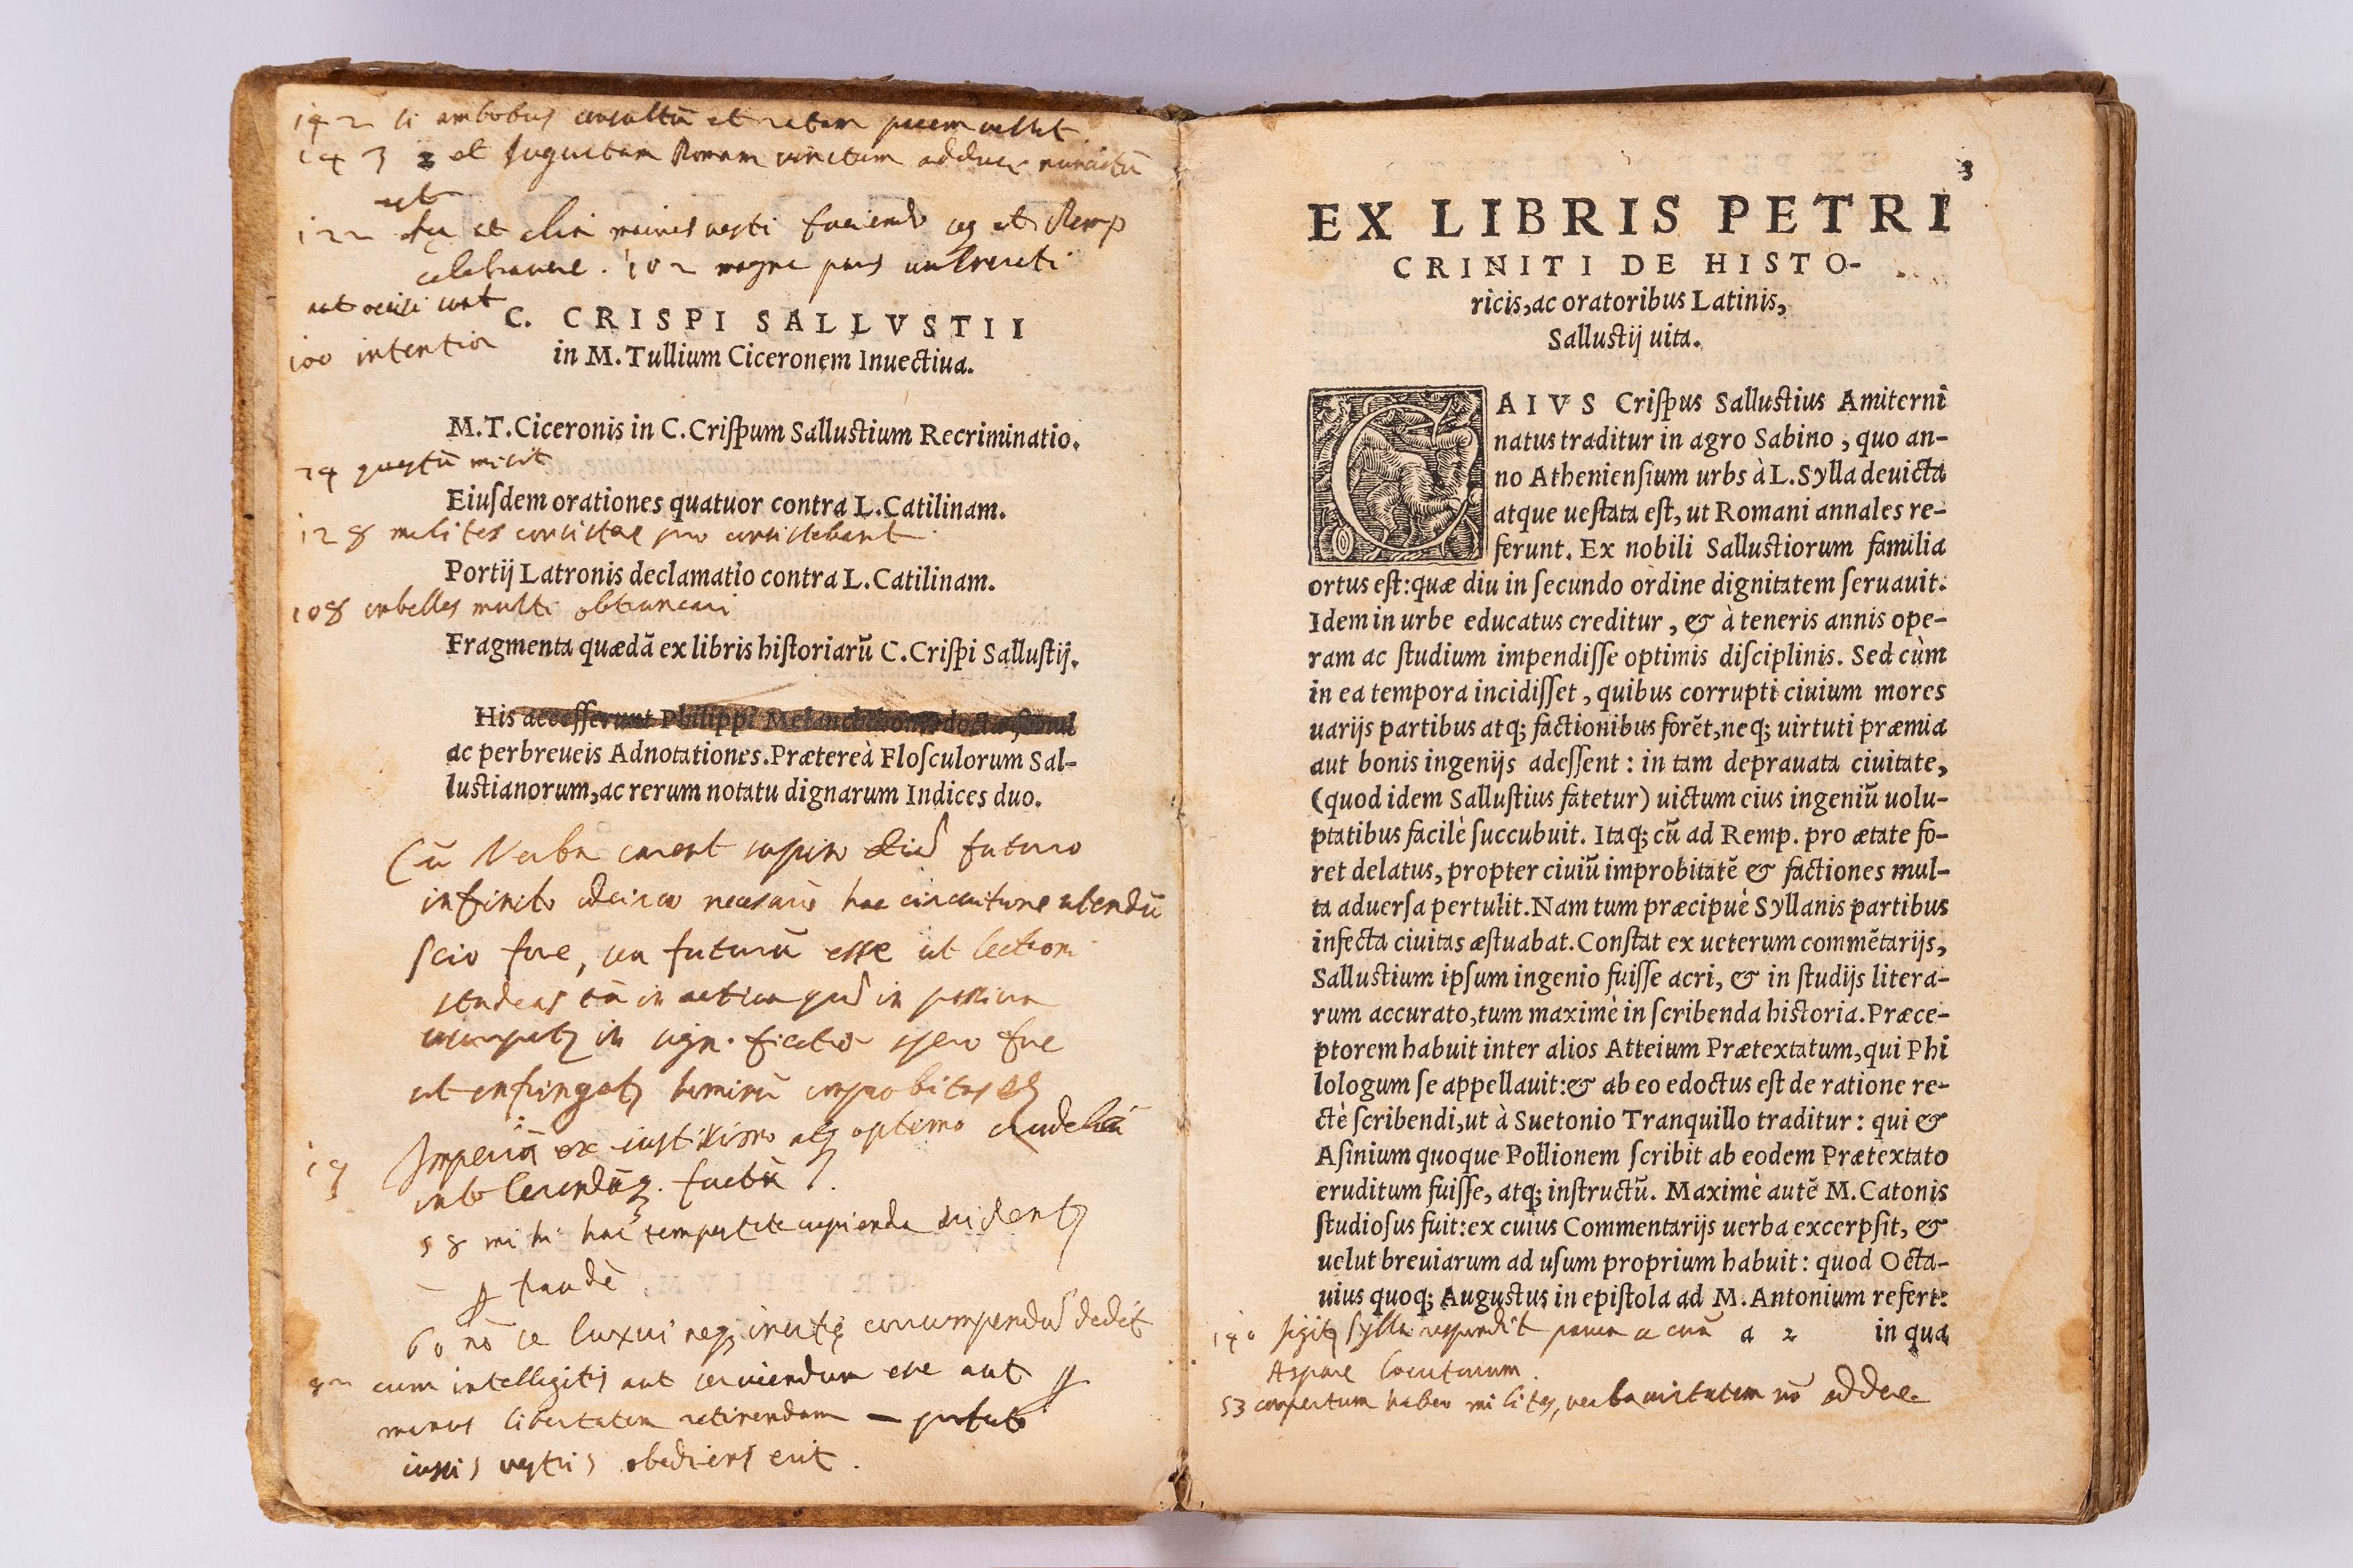 142 si ambobus consultū et ratam pacem vellet
143 2 et Iugurtam Romam vinctum adduci
ut
122
celebravere. 102 magna pars vulnerati
aut occisi sunt
C. CRISPI SALLVSTII
100 intentior
in M. Tullium Ciceronem Inuectiua.
M.T.Ciceronis in C.Criſpum Salluſtium Recriminatio.
24 questū misit
Eiuſdem orationes quatuor contra L.Catilinam.
128 milites consistere pro consistebant
Portij Latronis declamatio contra L.Catilinam.
108 imbelles multi obtruncari
Fragmenta quædā ex libris hiſtoriarū C.Criſpi Salluſtij.
His acceſſerunt Philippi Melanchthonis docta, ſimul
ac perbreueis Adnotationes.Prætereà Floſculorum Sal-
luſtianorum,ac rerum notatu dignarum Indices duo.
Cū Verba carent supino futuro
infinito idcirco necesario hac circuitione utendū
scio fore, seu futurū esse ut lectioni
studeas
in fore
ut
Imperiū ex iustissimo atq optimo crudele
intolerandūq. factū
58 mihi hac tempestate cupienda videntur
fraudē
60 nō se luxui neq inertię corrumpendus dedit
cum intelligitis aut serviendum esse aut
manus libertatem retinendam
iussis vestris obediens erit.
3
EX LIBRIS PETRI
CRINITI DE HISTO-
ricis,ac oratoribus Latinis,
Salluſtij uita.
CAIVS Criſpus Salluſtius Amiterni
natus traditur in agro Sabino , quo an-
no Athenienſium urbs à L.Sylla deuicta
atque ueſtata eſt, ut Romani annales re-
ferunt. Ex nobili Salluſtiorum familia
ortus eſt:quæ diu in ſecundo ordine dignitatem ſeruauit:
Idem in urbe educatus creditur , & à teneris annis ope-
ram ac ſtudium impendiſſe optimis diſciplinis. Sed cùm
in ea tempora incidiſſet , quibus corrupti ciuium mores
uarijs partibus atq; factionibus forēt,neq; uirtuti præmia
aut bonis ingenijs adeſſent : in tam deprauata ciuitate,
(quod idem Salluſtius fatetur) uictum eius ingeniū uolu-
ptatibus facilè ſuccubuit. Itaq; cū ad Remp. pro ætate fo-
ret delatus, propter ciuiū improbitatē & factiones mul-
ta aduerſa pertulit.Nam tum præcipuè Syllanis partibus
infecta ciuitas æſtuabat.Conſtat ex ueterum commētarijs,
Salluſtium ipſum ingenio fuiſſe acri, & in ſtudijs litera-
rum accurato,tum maximè in ſcribenda hiſtoria.Præce-
ptorem habuit inter alios Atteium Prætextatum,qui Phi
lologum ſe appellauit:& ab eo edoctus eſt de ratione re-
ctè ſcribendi,ut à Suetonio Tranquillo traditur : qui &
Aſinium quoque Pollionem ſcribit ab eodem Prætextato
eruditum fuiſſe, atq; inſtructū. Maximè autē M.Catonis
ſtudioſus fuit:ex cuius Commentarijs uerba excerpſit, &
uelut breuiarum ad uſum proprium habuit : quod Octa-
uius quoq; Auguſtus in epiſtola ad M.Antonium refert:
a 2 in qua
140 Sylla respondit pauca se corā
Aspare locuturum.
53 compertum habeo milites, verba virtutem nō addere